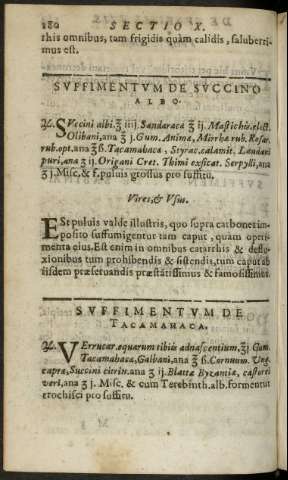 180 SECTIO X.
this omnibus, tam frigidis quàm calidis, saluberri-
mus est.
SVFFIMENTVM DE SVCCINO
ALBO.
℞. SVccini albi. ʒ iiij. Sandaraca ʒ ij. Mastichis. elect.
Olibani, ana ʒ j. Gum. Anima, Mirrha rub. Rosar.
rub. opt. ana ʒ ß. Tacamahaca, Styrac. calamit. Landani
puri, ana ʒ ij. Origani Cret. Thimi exsicat. Serpylli, ana
ʒ j. Misc. & f. puluis grossus pro suffitu.
Vires, & Vsus.
ESt puluis valde illustris, quo supra carbones im-
posito suffumigentur tam caput, quàm operi-
menta eius. Est enim in omnibus catarrhis & deflu-
xionibus tum prohibendis & sistendis, tum caput ab
iisdem præseruandis præstãtissimus & famosissimus.
SVFFIMENTVM DE
TACAMAHACA.
℞. VErrucar. equarum tibiis adnascentium, ʒj. Gum.
Tacamahaca, Galbani, ana ʒ ß. Cornuum. Vng.
capra, Succini citrin. ana ʒ ij. Blatta Byzantia, castorei
veri, ana ʒ j. Misc. & cum Terebinth. alb. formentur
trochisci pro suffitu.